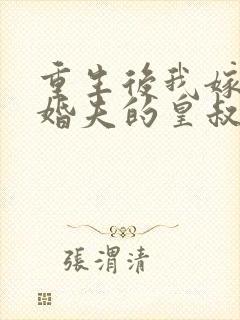 重生後我嫁
婚夫的皇叔
張渭清